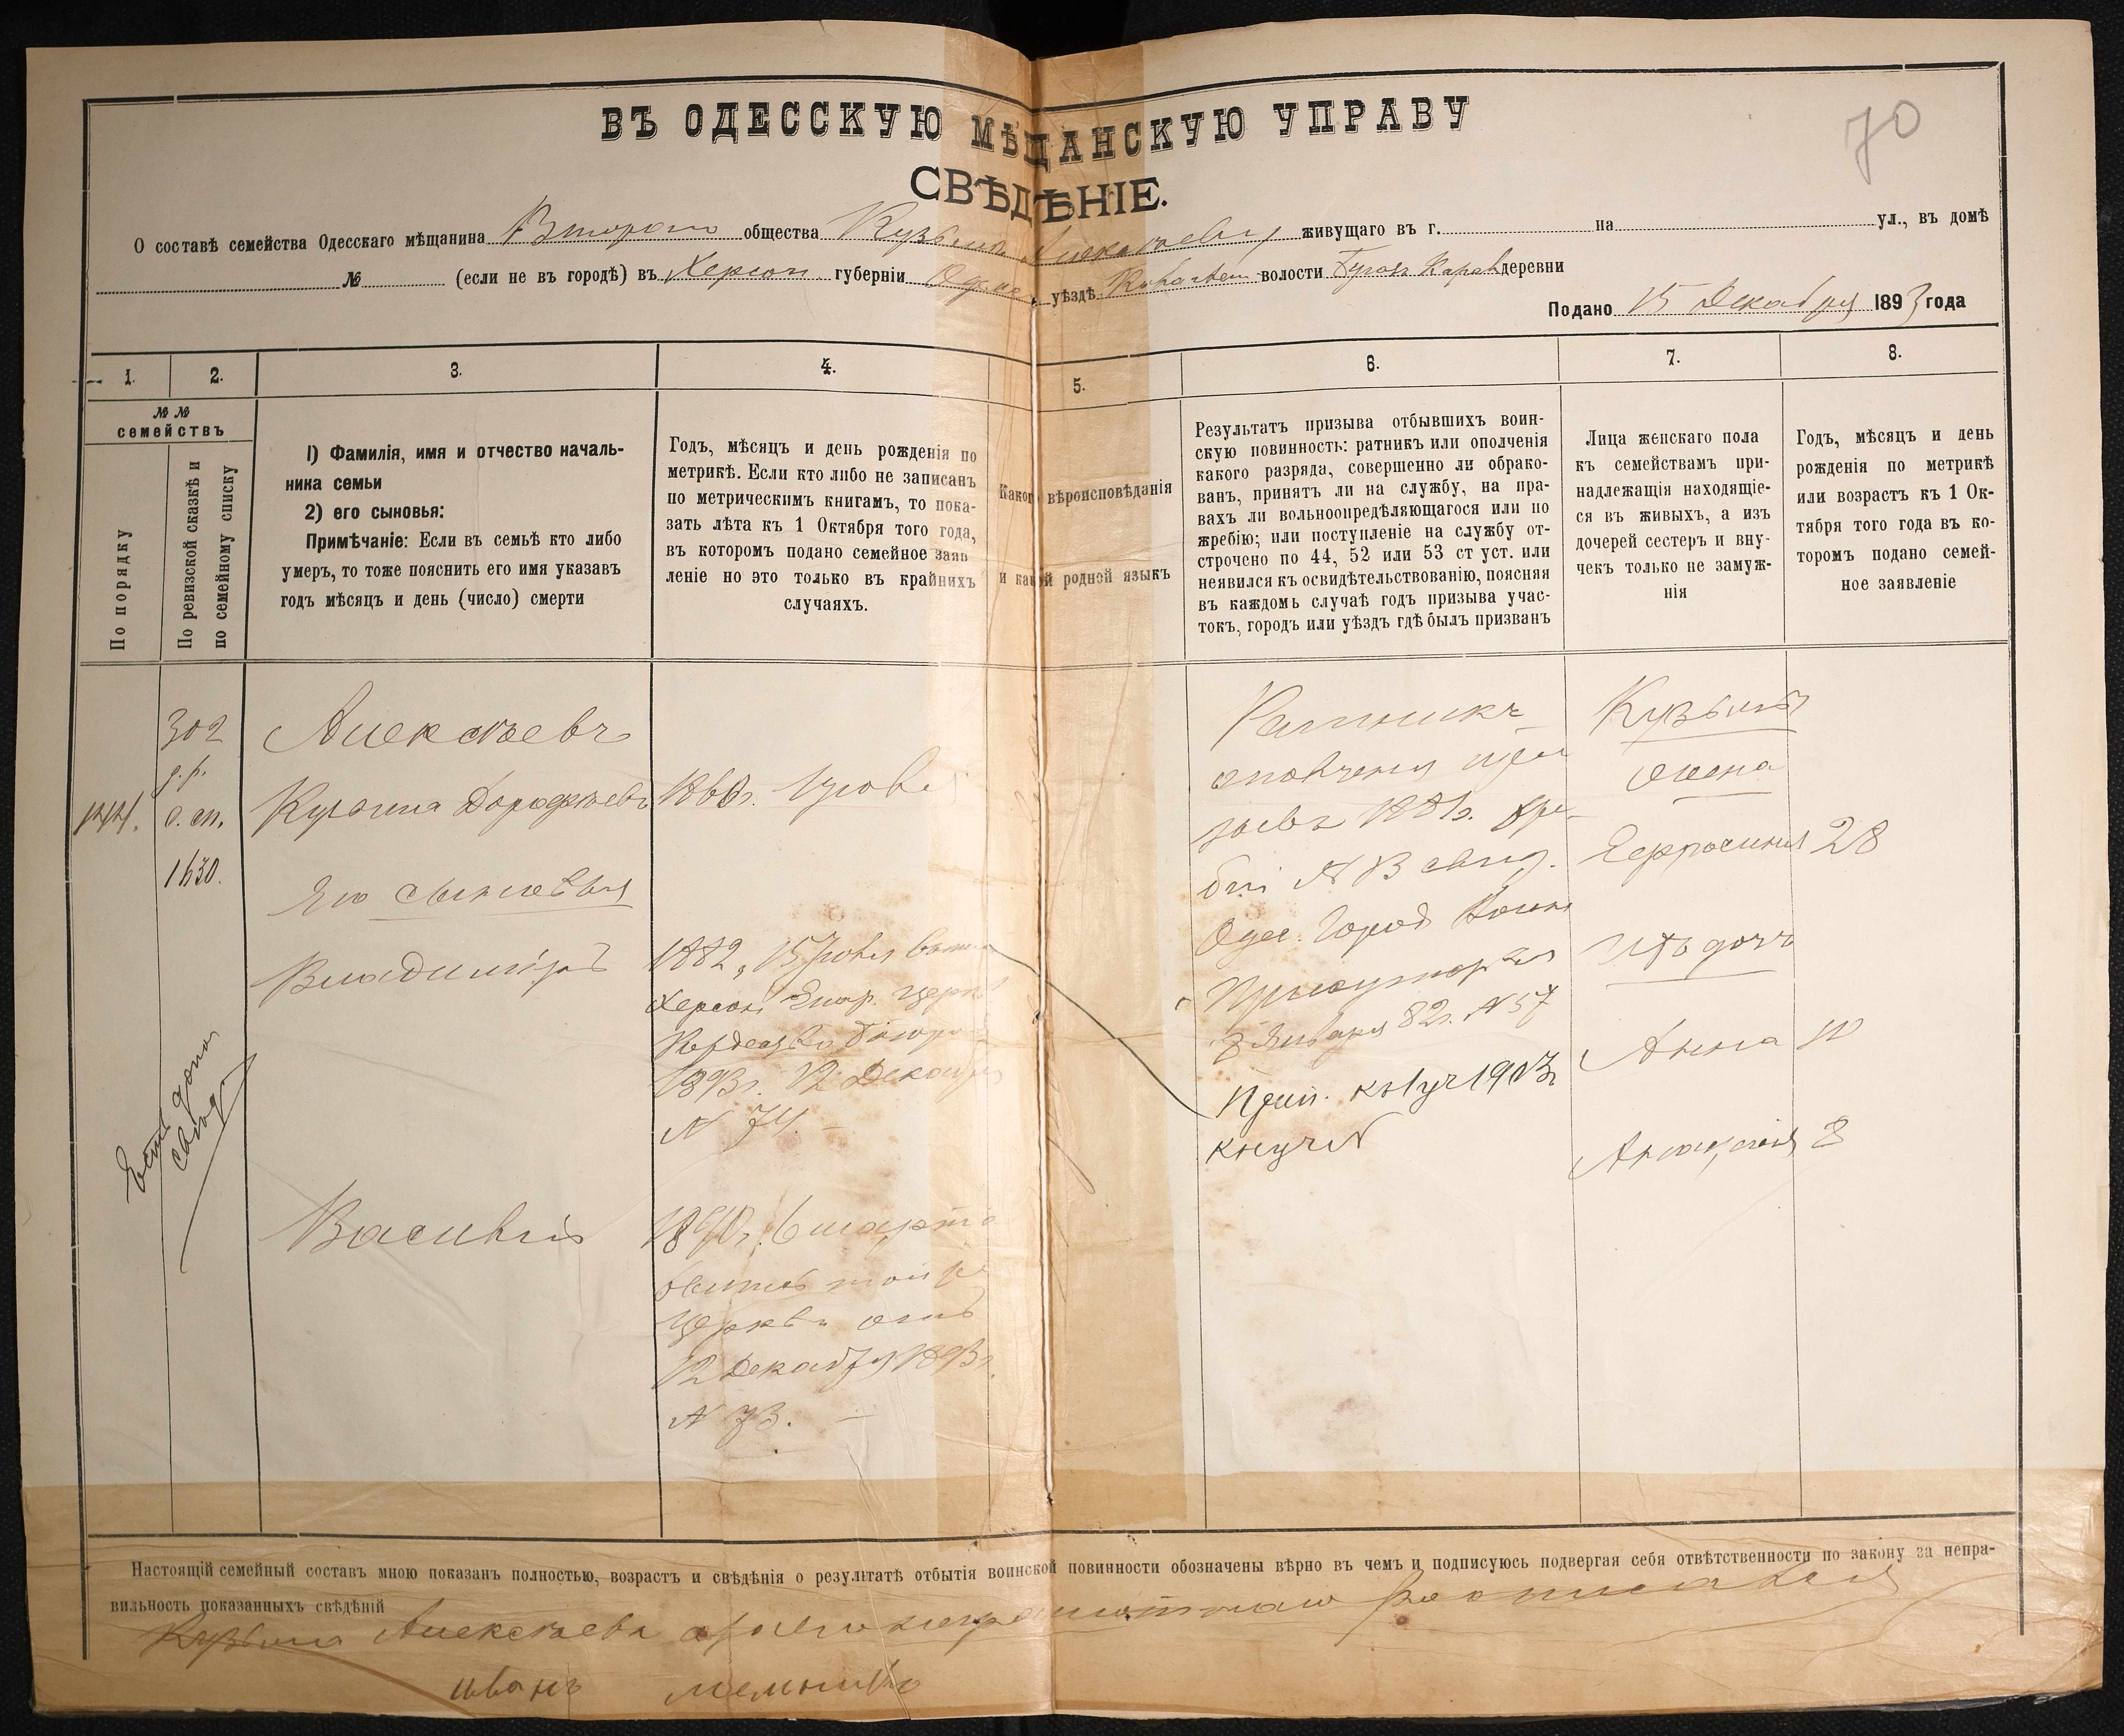 70
ВЪ ОДЕССКУЮ МѢЩАНСКУЮ УПРАВУ
СВѢДѢНІЕ.
О составѣ семейства Одесскаго мѣщанина Второго общества Кузьма Алексѣевъ живущаго въ г. на ул., въ домѣ
№ (если не въ городѣ) въ Херсон. губерніи Одес. уѣздѣ волости деревни
Подано 15 Декабря 1893 года
1. 2. 3. 4. 5. 6. 7. 8.
№ №
семействъ
По порядку
По ревизской сказкѣ и
по семейному списку
1) Фамилія, имя и отчество началь-
ника семьи
2) его сыновья:
Примѣчаніе: Если въ семьѣ кто либо
умеръ, то тоже пояснить его имя указавъ
годъ мѣсяцъ и день (число) смерти
Годъ, мѣсяцъ и день рожденія по
метрикѣ. Если кто либо не записанъ
по метрическимъ книгамъ, то пока-
зать лѣта къ 1 Октября того года,
въ которомъ подано семейное заяв
леніе но это только въ крайнихъ
случаяхъ.
Какого вѣроисповѣданія
и какой родной языкъ
Результатъ призыва отбывшихъ воин-
скую повинность: ратникъ или ополченія
какого разряда, совершенно ли обрако-
ванъ, принятъ ли на службу, на пра-
вахъ ли вольноопредѣляющагося или по
жребію; или поступленіе на службу от-
строчено по 44, 52 или 53 ст уст. или
неявился къ освидѣтельствованію, поясняя
въ каждомъ случаѣ годъ призыва учас-
токъ, городъ или уѣздъ гдѣ былъ призванъ
Лица женскаго пола
къ семействамъ при-
надлежащія находящіе-
ся въ живыхъ, а изъ
дочерей сестеръ и вну-
чекъ только не замуж-
нія
Годъ, мѣсяцъ и день
рожденія по метрикѣ
или возрастъ къ 1 Ок-
тября того года въ ко-
торомъ подано семей-
ное заявленіе
302
с. сп.
1630.
Алексѣевъ
Кузьма Дорофѣевъ
Его сыновья
Владиміръ
Василій
1860г.
1882, 15
Херсон. Епар. Церк
1893г. 12 Декабря
N 74.
1890г. 6 марта
той же
Церкви отъ
12 Декабря 1893г.
N 73.
Ратникъ
ополченія
1881г. жре-
бій N
Одес. Город Воин
Присутствія
8 Января 82г. N 57
1903г
Кузьмы
жена
Ефросинія 28
Ихъ дочь
Анна 10
Анастасія 8
Есть
Настоящій семейный составъ мною показанъ полностью, возрастъ и свѣдѣнія о результатѣ отбытія воинской повинности обозначены вѣрно въ чемъ и подписуюсь подвергая себя отвѣтственности по закону за непра-
вильность показанныхъ свѣдѣній
Кузьма Алексѣевъ
иванъ